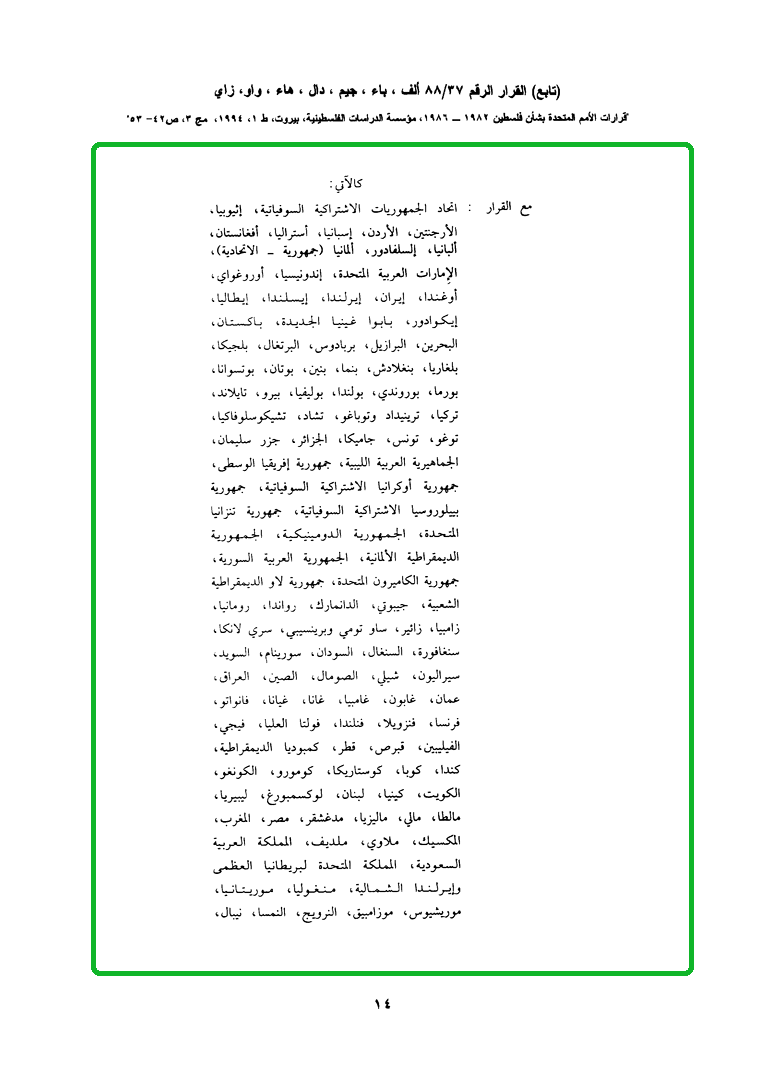 (تابع) القرار الرقم ٨٨/٣٧ ألف ، باء ، جيم ، دال ، هاء ، واو، زاي
قرارات الأمم المتحدة بشأن فلسطين ١٩٨٢ — ١٩٨٦، مؤسسة الدراسات الفلسطينية، بيروت، ط ١، ١٩٩٤، مج ٣، ص٤٢- ٥٣
كالآتي:
مع القرار : اتحاد الجمهوريات الاشتراكية السوفياتية، إثيوبيا،
الأرجنتين، الأردن، إسبانيا، أستراليا، أفغانستان،
ألبانيا، إلسلفادور، ألمانيا (جمهورية ــ الاتحادية)،
الإمارات العربية المتحدة، إندونيسيا، أوروغواي،
أوغندا، إيران، إيرلندا، إيسلندا، إيطاليا،
إيكوادور، بابوا غينيا الجديدة، باكستان،
البحرين، البرازيل، بربادوس، البرتغال، بلجيكا،
بلغاريا، بنغلادش، بنما، بنين، بوتان، بوتسوانا،
بورما، بوروندي، بولندا، بوليفيا، بيرو، تايلاند،
تركيا، ترينيداد وتوباغو، تشاد، تشيكوسلوفاكيا،
توغو، تونس، جاميكا، الجزائر، جزر سليمان،
الجماهيرية العربية الليبية، جمهورية إفريقيا الوسطى،
جمهورية أوكرانيا الاشتراكية السوفياتية، جمهورية
بييلوروسيا الاشتراكية السوفياتية، جمهورية تنزانيا
المتحدة، الجمهورية الدومينيكية، الجمهورية
الديمقراطية الألمانية، الجمهورية العربية السورية،
جمهورية الكاميرون المتحدة، جمهورية لاو الديمقراطية
الشعبية، جيبوتي، الدانمارك، رواندا، رومانيا،
زامبيا، زائير، ساو تومي وبرينسيبي، سري لانكا،
سنغافورة، السنغال، السودان، سورينام، السويد،
سيراليون، شيلي، الصومال، الصين، العراق،
عمان، غابون، غامبيا، غانا، غيانا، فانواتو،
فرنسا، فنزويلا، فنلندا، فولتا العليا، فيجي،
الفيليبين، قبرص، قطر، كمبوديا الديمقراطية،
كندا، كوبا، كوستاريكا، كومورو، الكونغو،
الكويت، كينيا، لبنان، لوكسمبورغ، ليبيريا،
مالطا، مالي، ماليزيا، مدغشقر، مصر، المغرب،
المكسيك، ملاوي، ملديف، المملكة العربية
السعودية، المملكة المتحدة لبريطانيا العظمى
وإيرلندا الشمالية، منغوليا، موريتانيا،
موريشيوس، موزامبيق، النرويج، النمسا، نيبال،
١٤